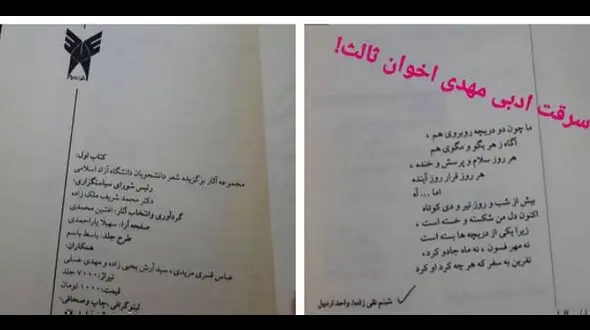 کتاب اول:
مجموعه آثار برگزیده شعر دانشجویان دانشگاه آزاد اسلامی
رئیس شورای سیاستگزاری:
دکتر محمد شریف ملک زاده
گردآوری وانتخاب آثار: افشین محمدی
صفحه آرا: سهیلا یاراحمدی
طرح جلد: باسط باسم
همکاران:
عباس قنبری مزیدی، سید آرش یحیی زاده و مهدی عسلی
تیراژ: ۷۰۰۰ جلد
قیمت: ۱۰۰۰ تومان
لیتوگرافی، چاپ وصحافی:
سرقت ادبی مهدی اخوان ثالث!
ما چون دو دریچه روبروی هم ،
آگاه ز هر بگو و مگوی هم
هر روز سلام و پرسش و خنده ،
هر روز قرار روز آینده
اما ... آه
بیش از شب و روز تیر و دی کوتاه
اکنون دل من شکسته و خسته است ،
زیرا یکی از دریچه ها بسته است
نه مهر فسون ، نه ماه جادو کرد ،
نفرین به سفر که هر چه کرد او کرد
شبنم نقی زاده/ واحد اردبیل